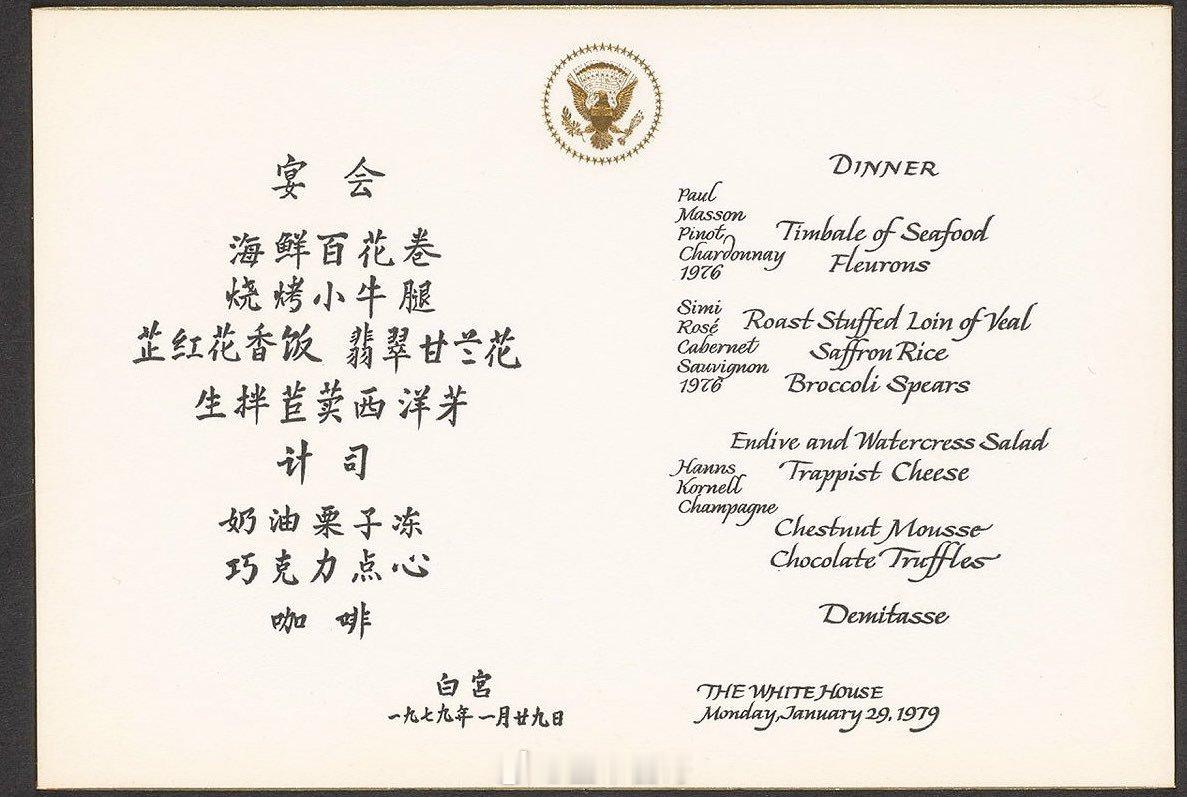 宴会
海鲜百花卷
烧烤小牛腿
芷红花香饭 翡翠甘兰花
生拌苣荬西洋芽
计司
奶油栗子冻
巧克力点心
咖啡
白宫
一九七九年一月廿九日
DINNER
Paul
Masson
Pinot
Chardonnay
1976
Timbale of Seafood
Fleurons
Simi
Rosé
Cabernet
Sauvignon
1976
Roast Stuffed Loin of Veal
Saffron Rice
Broccoli Spears
Endive and Watercress Salad
Trappist Cheese
Hanns
Kornell
Champagne
Chestnut Mousse
Chocolate Truffles
Demitasse
THE WHITE HOUSE
Monday, January 29, 1979